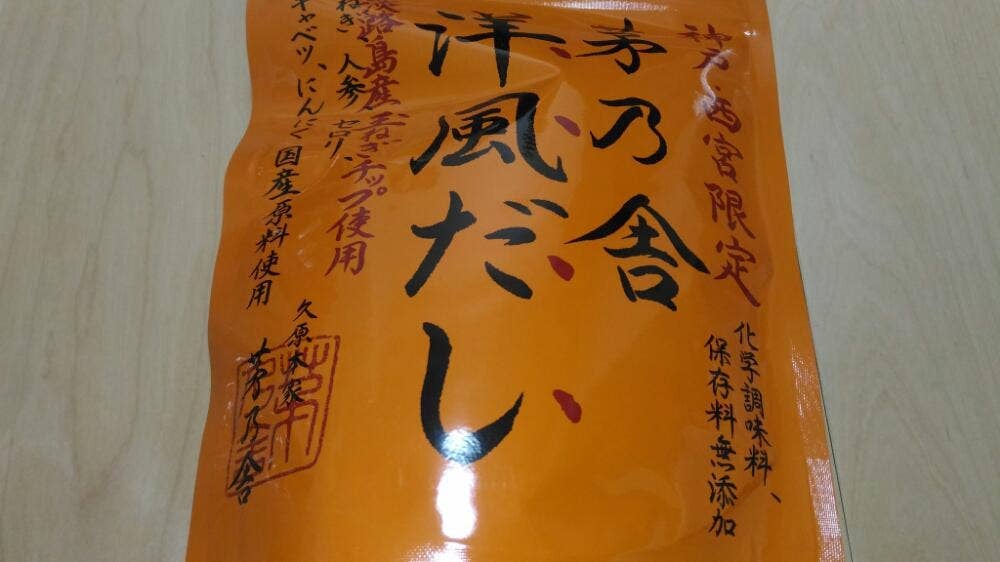 神戸・西宮限定
茅乃舎
洋風だし
化学調味料、
保存料無添加
淡路島産玉ねぎチップ使用
ねぎ、人参、セロリ、
キャベツ、にんにく国産原料使用
久原本家
茅乃舎